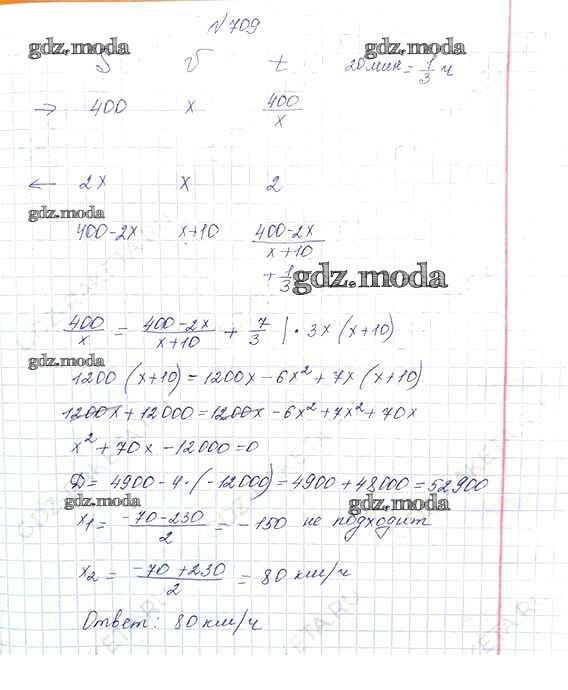 №709
gdz.moda gdz.moda
S V t 20 мин = 1/3 ч
→ 400 x 400/x
← 2x x 2
gdz.moda
400-2x x+10 400-2x/x+10
+ 1/3 gdz.moda
400/x = 400-2x/x+10 + 7/3 | • 3x (x+10)
gdz.moda
1200 (x+10) = 1200x - 6x² + 7x (x+10)
1200x + 12000 = 1200x - 6x² + 7x² + 70x
x² + 70x - 12000 = 0
D = 4900 - 4 • (-12000) = 4900 + 48000 = 52900
gdz.moda gdz.moda
x₁ = -70-230/2 = -150 не подходит
x₂ = -70+230/2 = 80 км/ч
Ответ: 80 км/ч